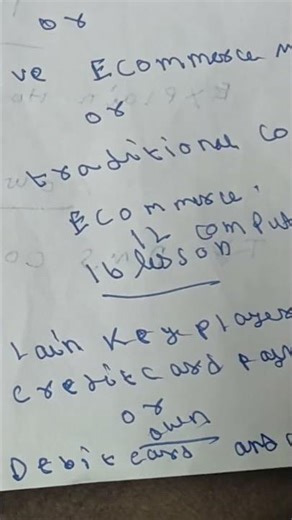 or
ve Ecommerce m
or
traditional co
Ecommerce.
12 comput
16 lesson
lain Key players
credit card pay
or
own
Debit card and